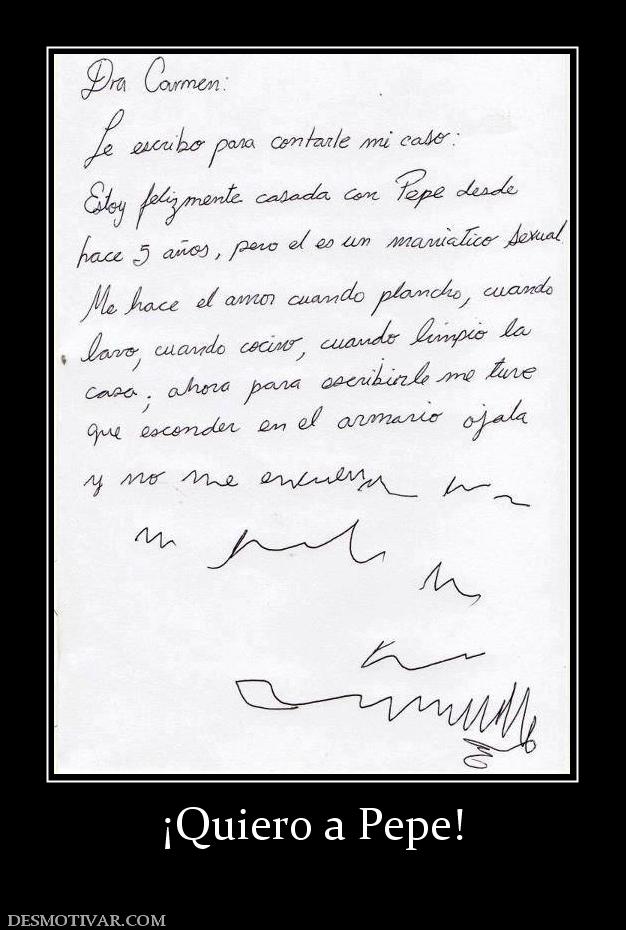 Dra Carmen:
Le escribo para contarle mi caso:
Estoy felizmente casada con Pepe desde
hace 5 años, pero el es un maniatico sexual.
Me hace el amor cuando plancho, cuando
lavo, cuando cocino, cuando limpio la
casa; ahora para escribirle me tuve
que esconder en el armario ojala
y no me encuen
¡Quiero a Pepe!
DESMOTIVAR.COM